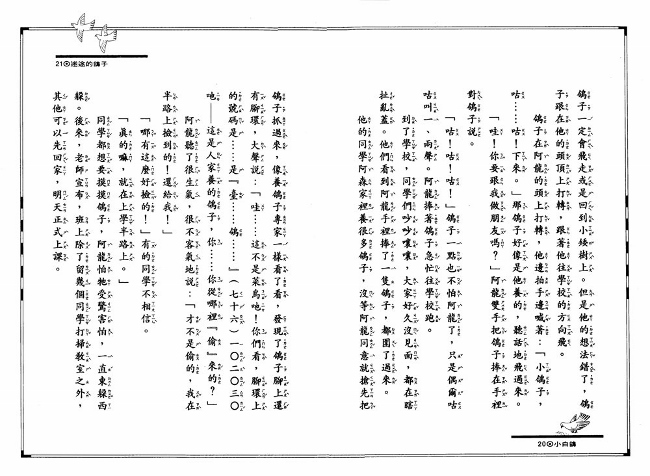 鴿子一定會飛走或是回到小矮樹上。但是他的想法錯了，鴿
子跟在他的頭頂上打轉，跟著他往學校的方向飛。
鴿子在阿龍的頭上打轉，他邊拍手邊喊著：「小鴿子，
咕……咕！下來。」那鴿子好像是他養的，聽話地飛過來。
「哇！你要跟我做朋友嗎？」阿龍雙手把鴿子捧在手裡
對鴿子說。
「咕！咕！咕！」鴿子一點也不怕阿龍了，只是偶爾咕
咕叫一、兩聲。阿龍捧著鴿子急忙往學校跑。
到了學校，同學們吵吵嚷嚷，大家好久沒見面，都在瞎
扯亂蓋。他們看到阿龍手裡捧了一隻鴿子，都圍了過來。
他的同學阿森家裡養很多鴿子，沒等阿龍同意就搶先把
20⊙小白鴿
鴿子抓過來，像養鴿子專家一樣看了看，發現了鴿子腳上還
有腳環，大聲說：「哇……這不是菜鳥吔！你們看，腳環上
的號碼是……是『臺……鴿……』（七十六）一〇二〇三〇
吔——這是人家養的鴿子，你……你從哪裡『偷』來的？」
阿龍聽了很生氣，很不客氣地說：「才不是偷的，我在
半路上撿到的！還給我！」
「哪有這麼好撿的！」有的同學不相信。
「真的嘛，就在上學半路上。」
同學都想要摸摸鴿子，阿龍怕牠受驚害怕，一直東躲西
躲。後來，老師宣布，班上除了留幾個同學打掃教室之外，
其他可以先回家，明天正式上課。
21⊙迷途的鴿子